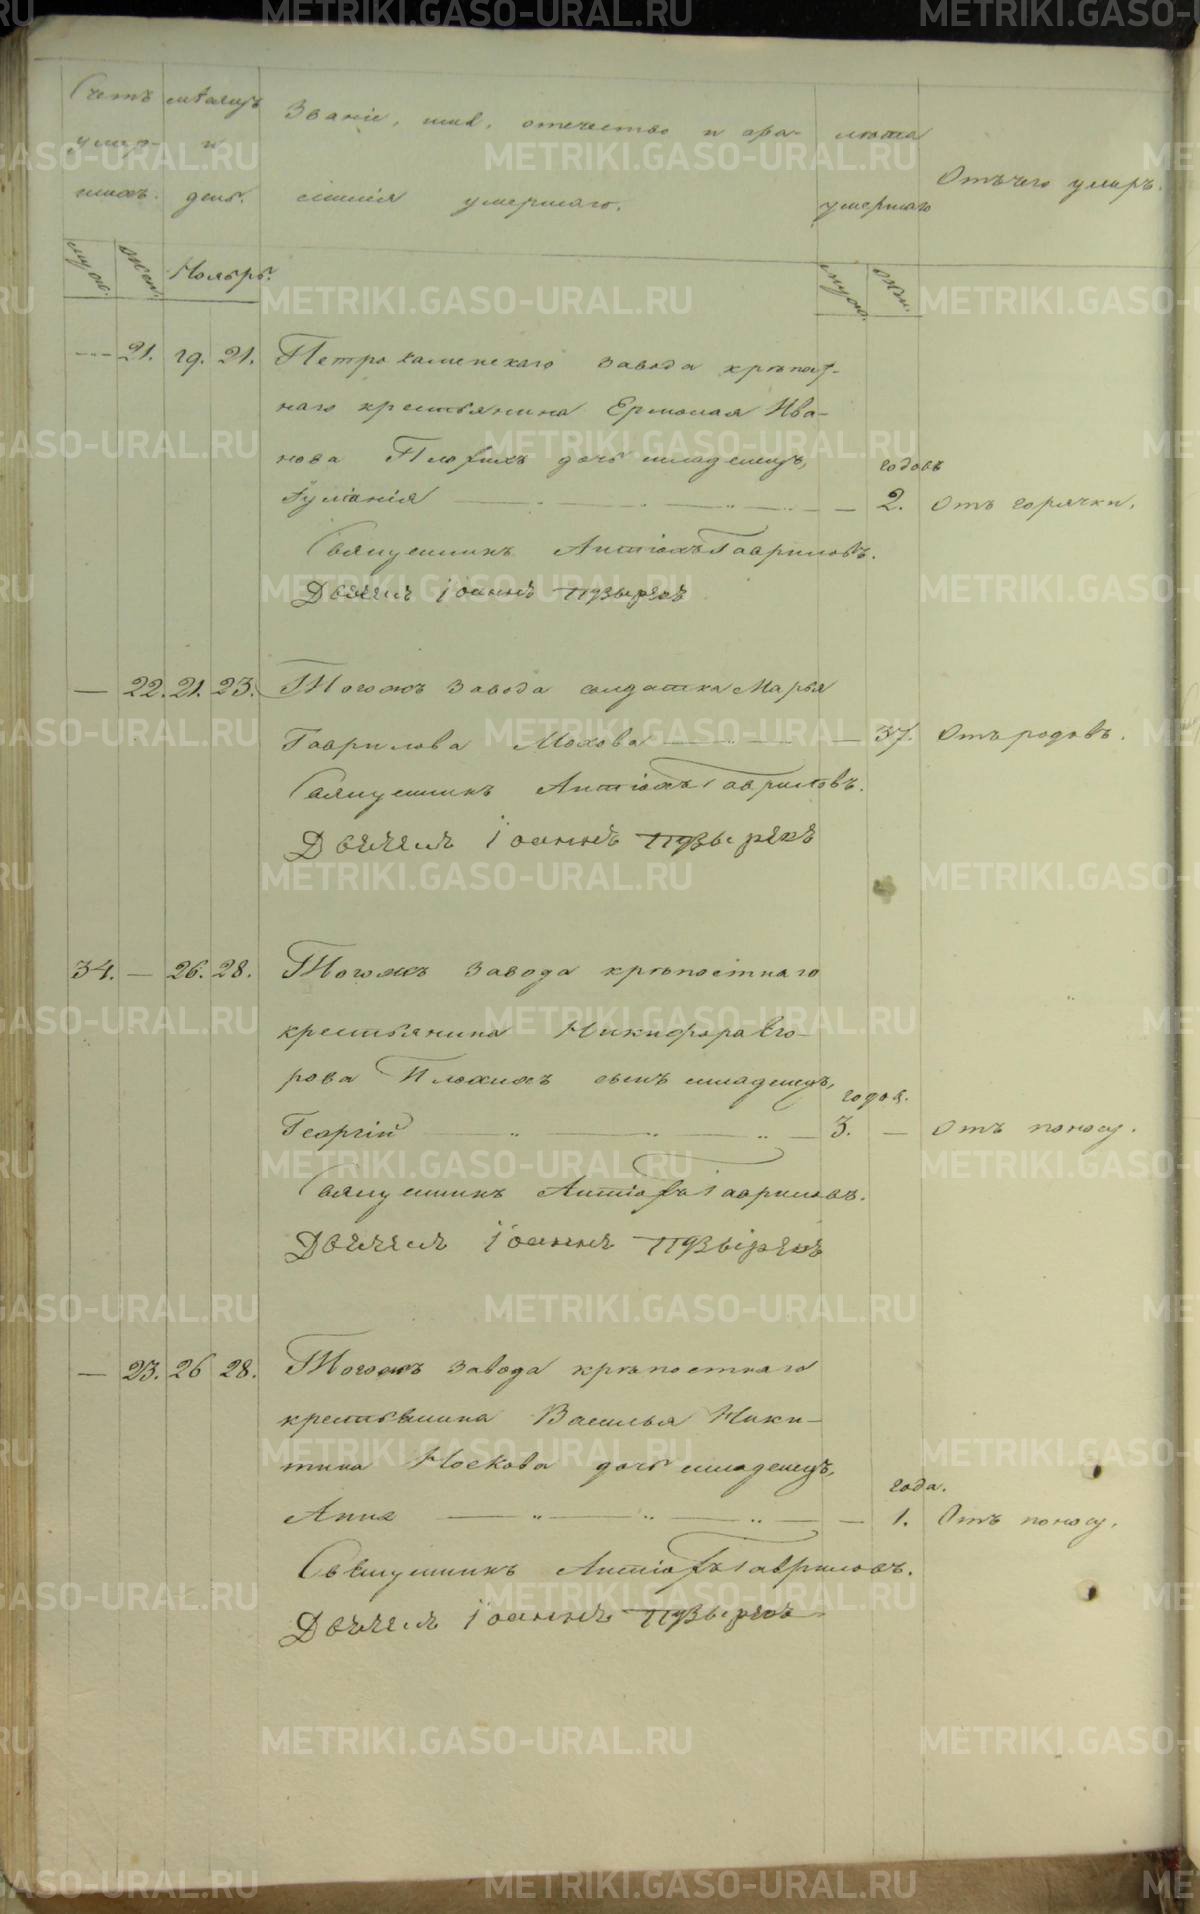 Счетъ мѣсяцъ Званіе, имя, отечество и фа- лѣта
умер- и Отъ чего умеръ.
шихъ. день. милія умершаго. умершаго
муж. жен. Ноябрь. муж. жен.
--- 21. 19. 21. Петрокаменскаго завода крѣпост-
наго крестьянина Ермолая Ива-
нова Плохихъ дочь младенецъ, годовъ
Іуліанія — 2. Отъ горячки.
Священникъ Антіохъ Гавриловъ.
Дьячекъ Іоаннъ Пузыревъ
— 22. 21. 23. Тогожъ завода солдатка Марья
Гаврилова Мохова — 37. Отъ родовъ.
Священникъ Антіохъ Гавриловъ.
Дьячекъ Іоаннъ Пузыревъ
34. — 26. 28. Тогожъ завода крѣпостнаго
крестьянина Никифора Его-
рова Плохихъ сынъ младенецъ, годов.
Георгій — 3. — Отъ поносу.
Священникъ Антіохъ Гавриловъ.
Дьячекъ Іоаннъ Пузыревъ
— 23. 26 28. Тогожъ завода крѣпостнаго
крестьянина Василья Ники-
тина Носкова дочь младенецъ, года.
Анна — 1. Отъ поносу.
Священникъ Антіохъ Гавриловъ.
Дьячекъ Іоаннъ Пузыревъ
METRIKI.GASO-URAL.RU